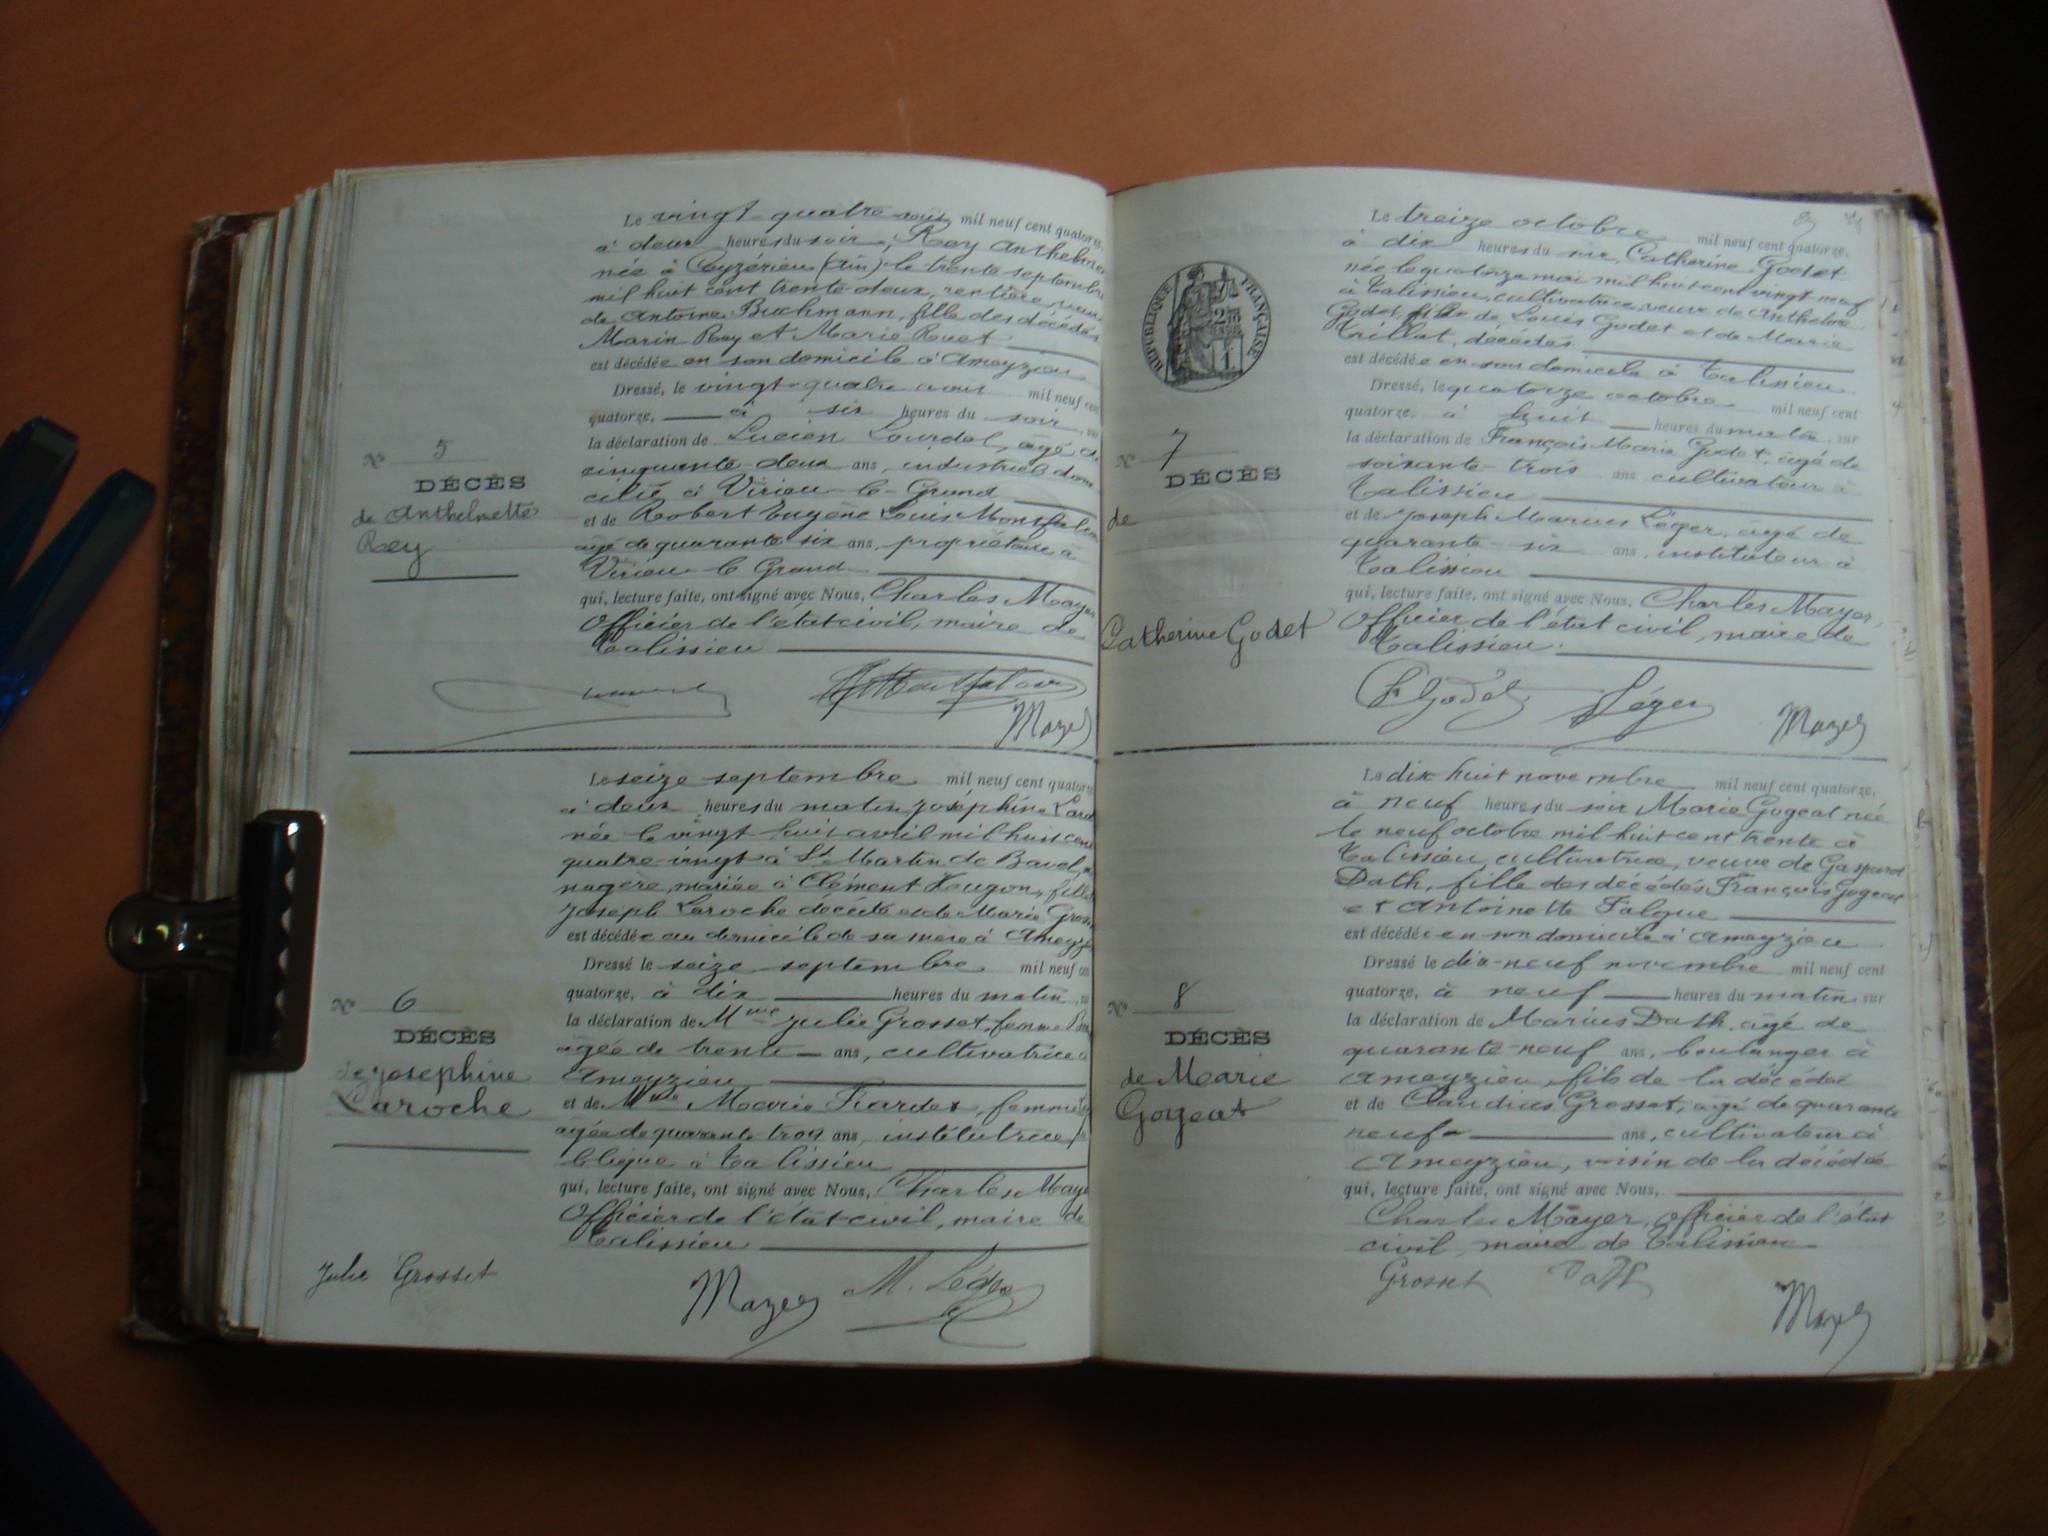 Le vingt-quatre août mil neuf cent quatorze,
à deux heures du soir, Rey Anthelme
née à Ceyzérieu (Ain) le trente septembre
mil huit cent trente-deux, rentière veuve
de Antoine Buchmann, fille des décédés
Marin Rey et Marie
est décédée en son domicile à Ameyzieu
Dressé, le vingt-quatre août mil neuf cent
quatorze, à six heures du soir, sur
la déclaration de Lucien Lourdel, âgé de
cinquante-deux ans, industriel domi
cilié à Virieu-le-Grand
et de Robert Eugène Louis Montfalcon
âgé de quarante-six ans, propriétaire à
Virieu-le-Grand
qui, lecture faite, ont signé avec Nous, Charles Mayer
Officier de l'état civil, maire de
Talissieu
N° 5
DÉCÈS
de Anthelmette
Rey
Mayer
Le seize septembre mil neuf cent quatorze
à deux heures du matin Joséphine Laro
née le vingt huit avril mil huit cent
quatre-vingt à St Martin de Bavel,
nagère, mariée à Clément Hugon, fille
Joseph Laroche décédé et de Marie Gross
est décédée au domicile de sa mère à Ameyzie
Dressé le seize septembre mil neuf cen
quatorze, à dix heures du matin, su
la déclaration de Mme Julie Grosset, femme
âgée de trente ans, cultivatrice à
Ameyzieu
et de Mme Marie femme
âgée de quarante trois ans, institutrice
blique à Talissieu
qui, lecture faite, ont signé avec Nous, Charles Maye
Officier de l'état civil, maire de
Talissieu
N° 6
DÉCÈS
de Josephine
Laroche
Julie Grosset Mayer M. Léger
Le treize octobre mil neuf cent quatorze,
à dix heures du soir, Catherine Godet
née le quatorze mai mil huit cent vingt-neuf
à Talissieu, cultivatrice, veuve de Anthelme
Godet, fille de Louis Godet et de Marie
Trillat, décédés
est décédée en son domicile à Talissieu
Dressé, le quatorze octobre mil neuf cent
quatorze, à huit heures du matin, sur
la déclaration de François Marie Godet, âgé de
soixante-trois ans cultivateur à
Talissieu
et de Joseph Marius Léger, âgé de
quarante-six ans, instituteur à
Talissieu
qui, lecture faite, ont signé avec Nous, Charles Mayer,
Officier de l'état civil, maire de
Talissieu.
RÉPUBLIQUE FRANÇAISE
N° 7
DÉCÈS
de
Catherine Godet
F Godet Léger Mayer
Le dix huit novembre mil neuf cent quatorze,
à neuf heures du soir Marie Gogeat née
le neuf octobre mil huit cent trente à
Talissieu, cultivatrice, veuve de Gaspard
Dath, fille des décédés François Gogeat
et Antoinette Falque
est décédée en son domicile à Ameyzieu
Dressé le dix-neuf novembre mil neuf cent
quatorze, à neuf heures du matin sur
la déclaration de Marius Dath, âgé de
quarante-neuf ans, boulanger à
Ameyzieu, fils de la décédée
et de Claudius Grosset, âgé de quarante
neuf ans, cultivateur à
Ameyzieu, voisin de la décédée
qui, lecture faite, ont signé avec Nous,
Charles Mayer, officier de l'état
civil, maire de Talissieu
N° 8
DÉCÈS
de Marie
Gogeat
Grosset Dath Mayer